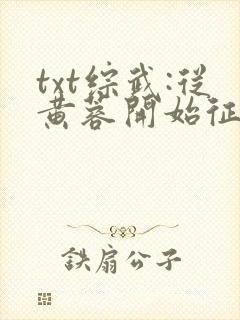 txt綜武:從
黄蓉開始征
鉄扇公子